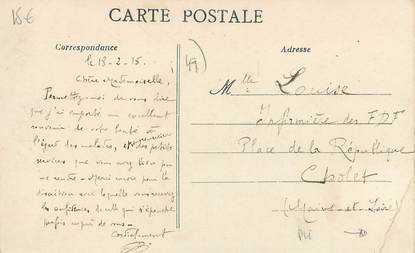 15€
CARTE POSTALE
Correspondance
Adresse
le 18-2-15.
49
Chère Mademoiselle,
Permettez-moi de vous dire
que j'ai emporté un excellent
souvenir de votre bonté à
l'égard des malades, et des petits
services que vous avez bien pu
me rendre. Merci encore pour la
discrétion avec laquelle vous recevez
les confidences de celui qui s'épanche
parfois auprès de vous.
Cordialement
Mlle Louise
Infirmière des FDF
Place de la République
Cholet
(Maine-et-Loire)